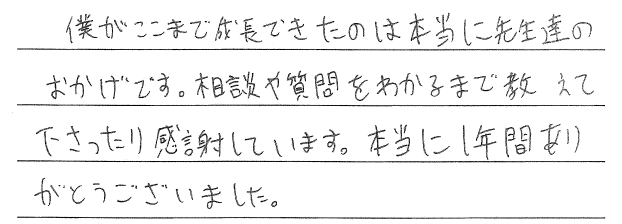 僕がここまで成長できたのは本当に先生達の
おかげです。相談や質問をわかるまで教えて
下さったり感謝しています。本当に1年間あり
がとうございました。